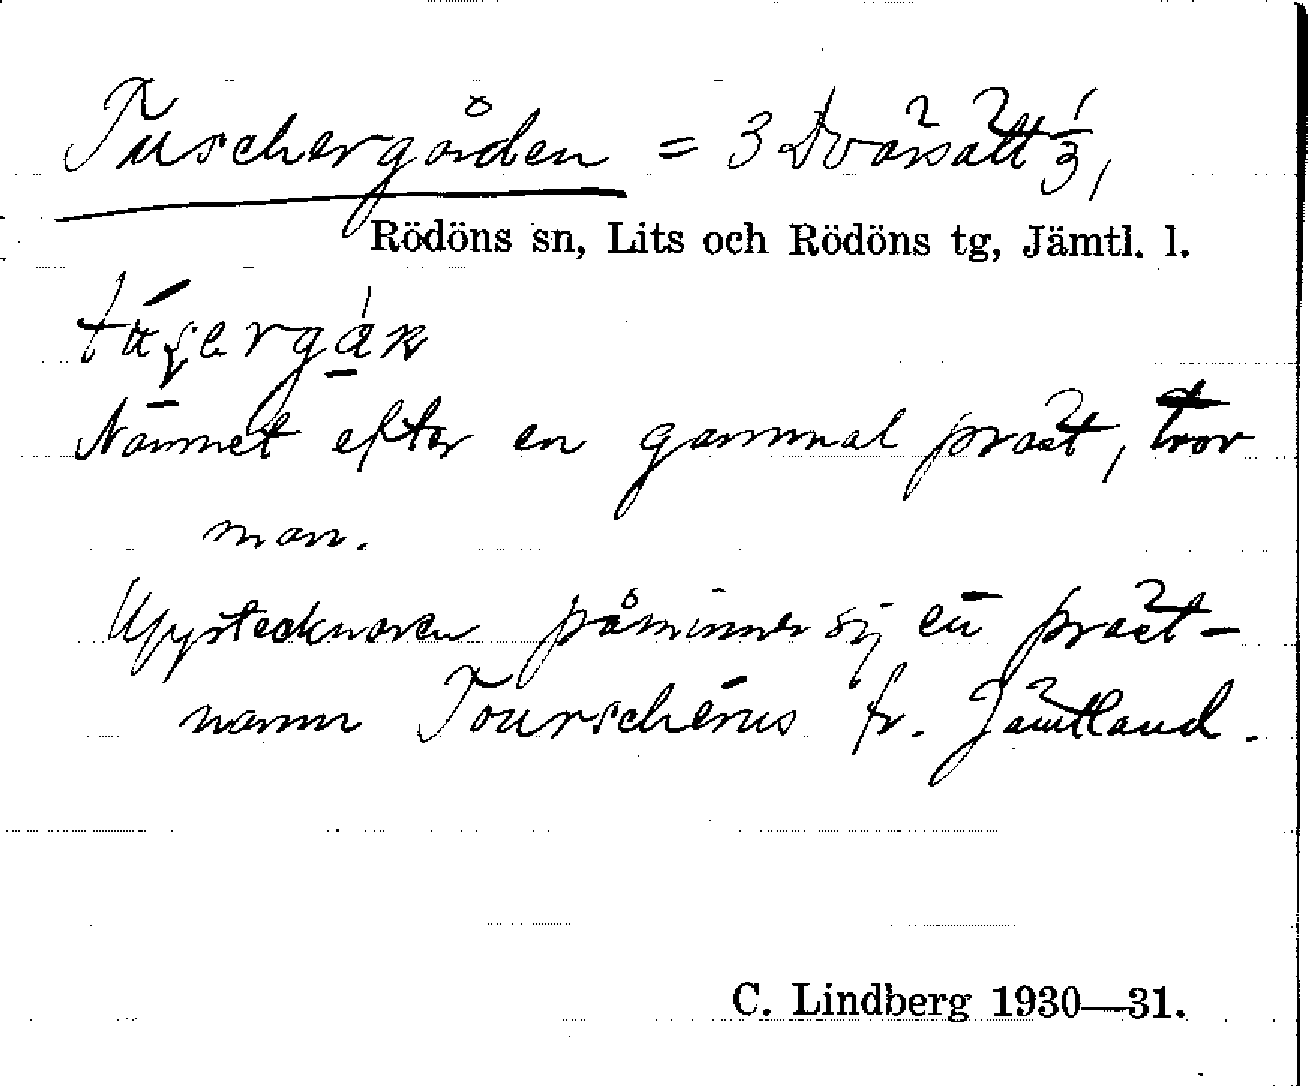 Tuschergården = 3 Dvärsätt 1/3,
Rödöns sn, Lits och Rödöns tg, Jämtl. l.
Nämnet efter en gammal präst, tror
man.
Upptecknaren påminner sig en präst-
namn Tourschérus fr. Jämtland.
C. Lindberg 1930—31.